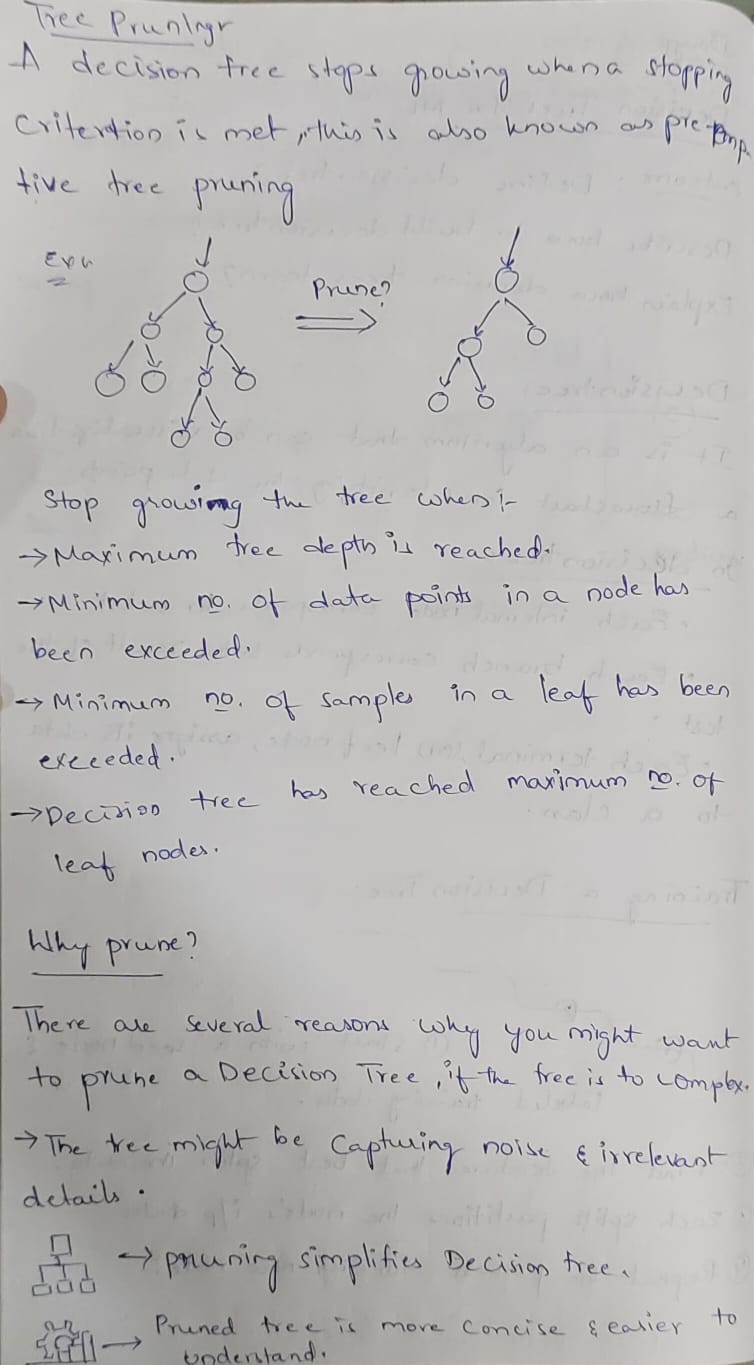 Tree Pruning
A decision tree stops growing when a stopping
Critertion is met, this is also known as pre-emp
tive tree pruning
Prune?
Stop growing the tree when:-
→ Maximum tree depth is reached.
→ Minimum no. of data points in a node has
been exceeded.
→ Minimum no. of samples in a leaf has been
exceeded.
→ Decision tree has reached maximum no. of
leaf nodes.
Why prune?
There are several reasons why you might want
to prune a Decision Tree, if the tree is to complex.
→ The tree might be capturing noise & irrelevant
details.
→ pruning simplifies Decision tree.
→ Pruned tree is more concise & easier to
understand.